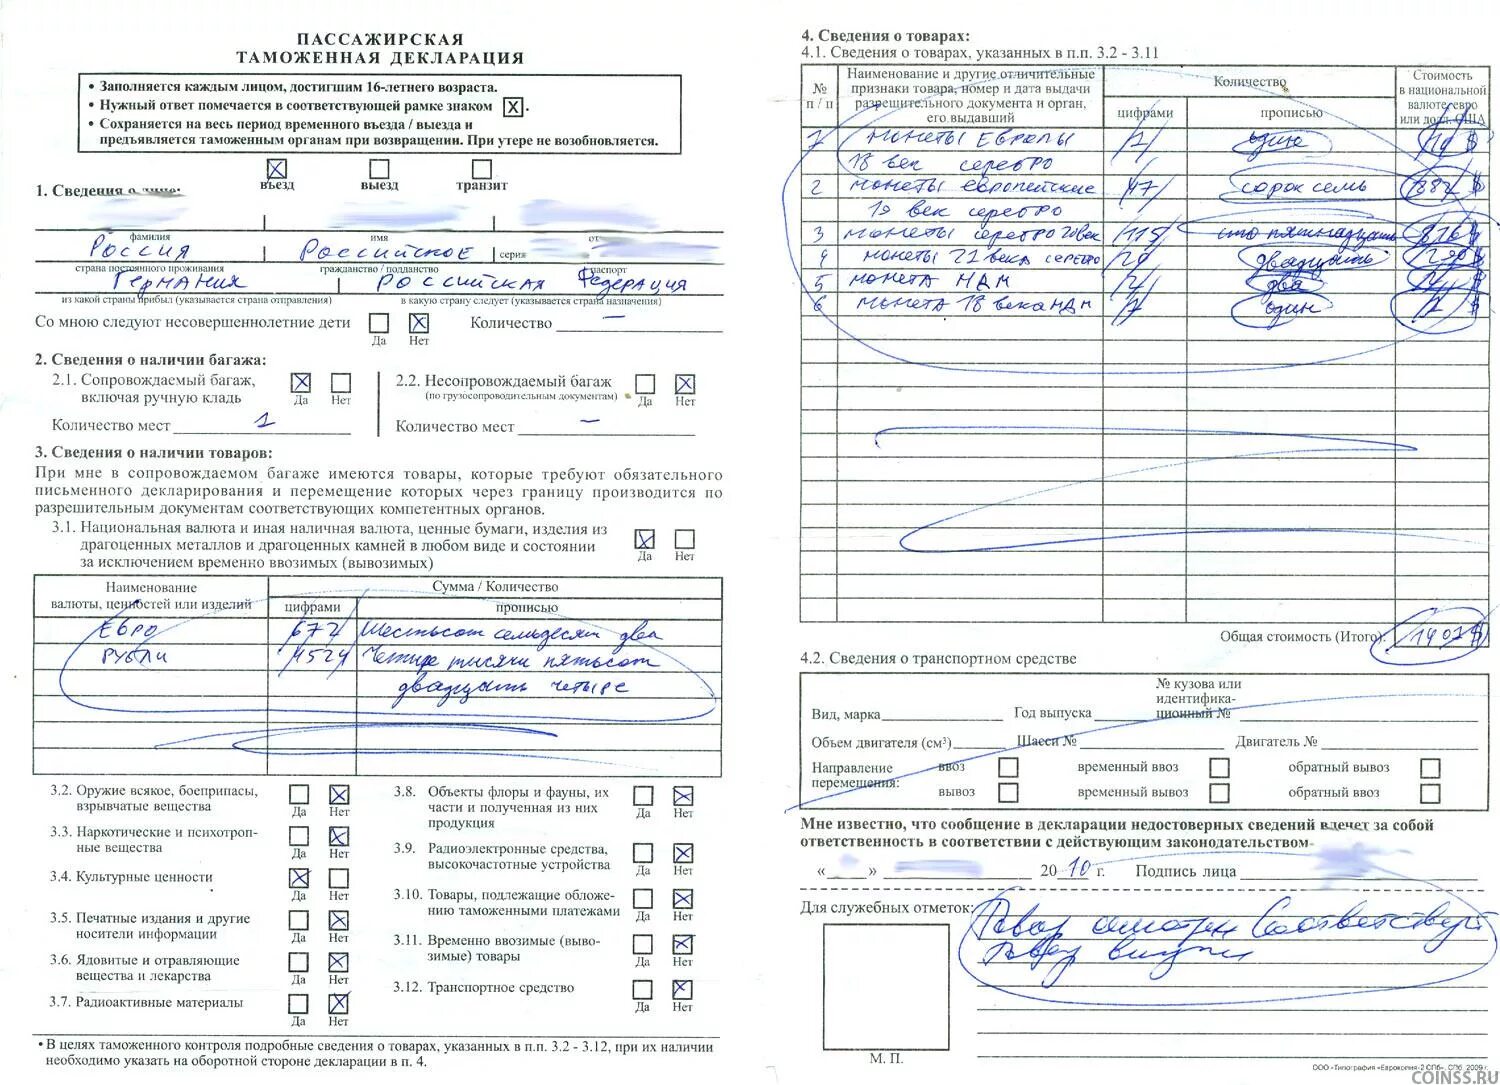 ПАССАЖИРСКАЯ
ТАМОЖЕННАЯ ДЕКЛАРАЦИЯ
• Заполняется каждым лицом, достигшим 16-летнего возраста.
• Нужный ответ помечается в соответствующей рамке знаком X.
• Сохраняется на весь период временного въезда / выезда и
предъявляется таможенным органам при возвращении. При утере не возобновляется.
въезд выезд транзит
1. Сведения о лице:
фамилия имя от
Россия Российское серия
страна постоянного проживания гражданство / подданство паспорт
Германия Российская Федерация
из какой страны прибыл (указывается страна отправления) в какую страну следует (указывается страна назначения)
Со мною следуют несовершеннолетние дети Да Нет Количество —
2. Сведения о наличии багажа:
2.1. Сопровождаемый багаж,
включая ручную кладь Да Нет
Количество мест 1
2.2. Несопровождаемый багаж
(по грузосопроводительным документам) Да Нет
Количество мест —
3. Сведения о наличии товаров:
При мне в сопровождаемом багаже имеются товары, которые требуют обязательного
письменного декларирования и перемещение которых через границу производится по
разрешительным документам соответствующих компетентных органов.
3.1. Национальная валюта и иная наличная валюта, ценные бумаги, изделия из
драгоценных металлов и драгоценных камней в любом виде и состоянии
за исключением временно ввозимых (вывозимых) Да Нет
Наименование
валюты, ценностей или изделий
Сумма / Количество
цифрами прописью
Евро 672 Шестьсот семьдесят два
Рубли 4524 Четыре тысячи пятьсот
двадцать четыре
3.2. Оружие всякое, боеприпасы,
взрывчатые вещества Да Нет
3.3. Наркотические и психотроп-
ные вещества Да Нет
3.4. Культурные ценности Да Нет
3.5. Печатные издания и другие
носители информации Да Нет
3.6. Ядовитые и отравляющие
вещества и лекарства Да Нет
3.7. Радиоактивные материалы Да Нет
3.8. Объекты флоры и фауны, их
части и полученная из них
продукция Да Нет
3.9. Радиоэлектронные средства,
высокочастотные устройства Да Нет
3.10. Товары, подлежащие обложе-
нию таможенными платежами Да Нет
3.11. Временно ввозимые (выво-
зимые) товары Да Нет
3.12. Транспортное средство Да Нет
• В целях таможенного контроля подробные сведения о товарах, указанных в п.п. 3.2 - 3.12, при их наличии
необходимо указать на оборотной стороне декларации в п. 4.
4. Сведения о товарах:
4.1. Сведения о товарах, указанных в п.п. 3.2 - 3.11
№
п / п
Наименование и другие отличительные
признаки товара, номер и дата выдачи
разрешительного документа и орган,
его выдавший
Количество
цифрами прописью
Стоимость
в национальной
валюте, евро
или долл. США
1 монеты Европы 1 один
18 век серебро
2 монеты европейские 47 сорок семь
19 век серебро
3 монеты серебро 20 век 115 сто пятнадцать
4 монеты 21 века серебро 20 двадцать
5 монета НДМ 2 два
6 монета 18 века НДМ 1 один
Общая стоимость (Итого):
4.2. Сведения о транспортном средстве
Вид, марка Год выпуска № кузова или
идентифика-
ционный №
Объем двигателя (см³) Шасси № Двигатель №
Направление
перемещения:
ввоз временный ввоз обратный вывоз
вывоз временный вывоз обратный ввоз
Мне известно, что сообщение в декларации недостоверных сведений влечет за собой
ответственность в соответствии с действующим законодательством
« » 2010 г. Подпись лица
Для служебных отметок:
Товар смотрен Соответствует
Товар
М. П.
ООО «Типография «Еврокопия-2 СПб». СПб. 2009 г.
COINSS.RU